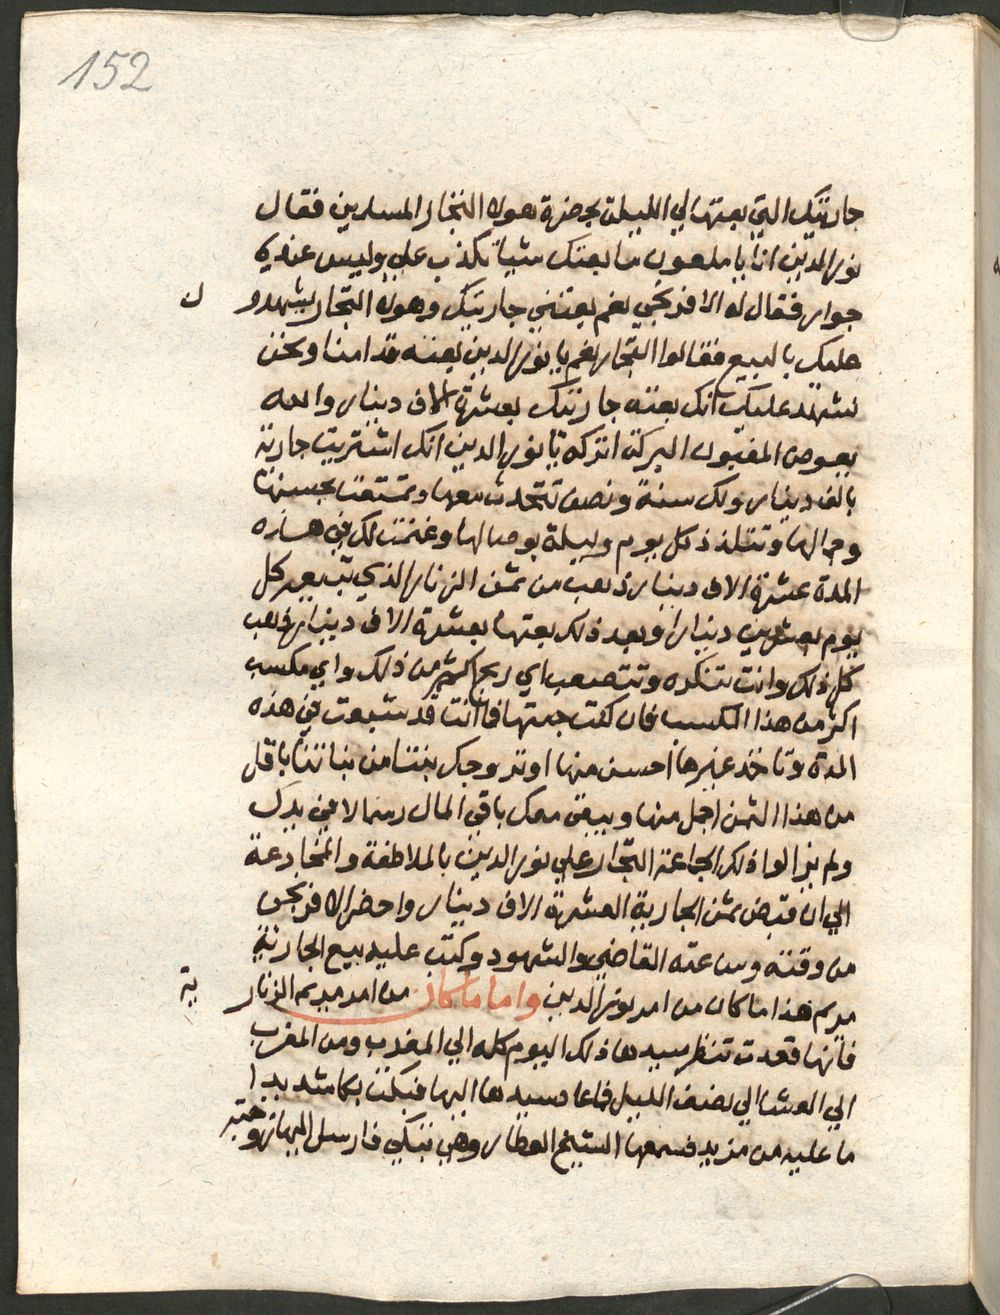 152
جاريتك التي بعتها لي الليلة بحضرة هولاء التجار المسلمين فقال
نور الدين انا يا ملعون ما بعتك شيا تكذب علي وليس عندي
جوار فقال له الافرنجي نعم بعتني جاريتك وهولاء التجار يشهدو
ل
عليك بالبيع فقالوا التجار نعم يا نور الدين بعته قدامنا ونحن
نشهد عليك انك بعته جاريتك بعشرة الاف دينار والله
يعوض المغبون البركة اتركه يا نور الدين انك اشتريت جارية
بالف دينار ولك سنة ونصف تتحدث معها وتمتعت بحسنها
وجمالها وتتلذذ كل يوم وليلة بوصالها وغنمت لك في هذه
المدة عشرة الاف دينار ذهب من ثمن الزنار الذي تبيعه كل
يوم بعشرين دينارا وبعد ذلك بعتها بعشرة الاف دينار ذهب
كل ذلك وانت تنكره وتتصعب اي ربح اكثر من ذلك واي مكسب
اكثر من هذا المكسب فان كنت حبيتها فانت قد شبعت في هذه
المدة وتاخذ غيرها احسن منها او نزوجك بنتا من بناتنا باقل
من هذا الثمن اجمل منها ويبقى معك باقي المال رسمالا في يدك
ولم يزالوا ذلك الجماعة التجار علي نور الدين بالملاطفة والمخادعة
الي ان قبض ثمن الجارية العشرة الاف دينار واحضر الافرنجي
من وقته وساعته القاضي والشهود وكتب عليه بيع الجارية
مريم هذا ما كان من امر نور الدين واما ما كان من امر مريم الزنار
ية
فانها قعدت تنظر سيدها ذلك اليوم كله الي المغرب ومن المغرب
الي العشا الي نصف الليل فما عاد سيدها اليها فبكت بكا شديدا
ما عليه من مزيد فسمعها الشيخ العطار وهي تبكي فارسل اليها زوجته